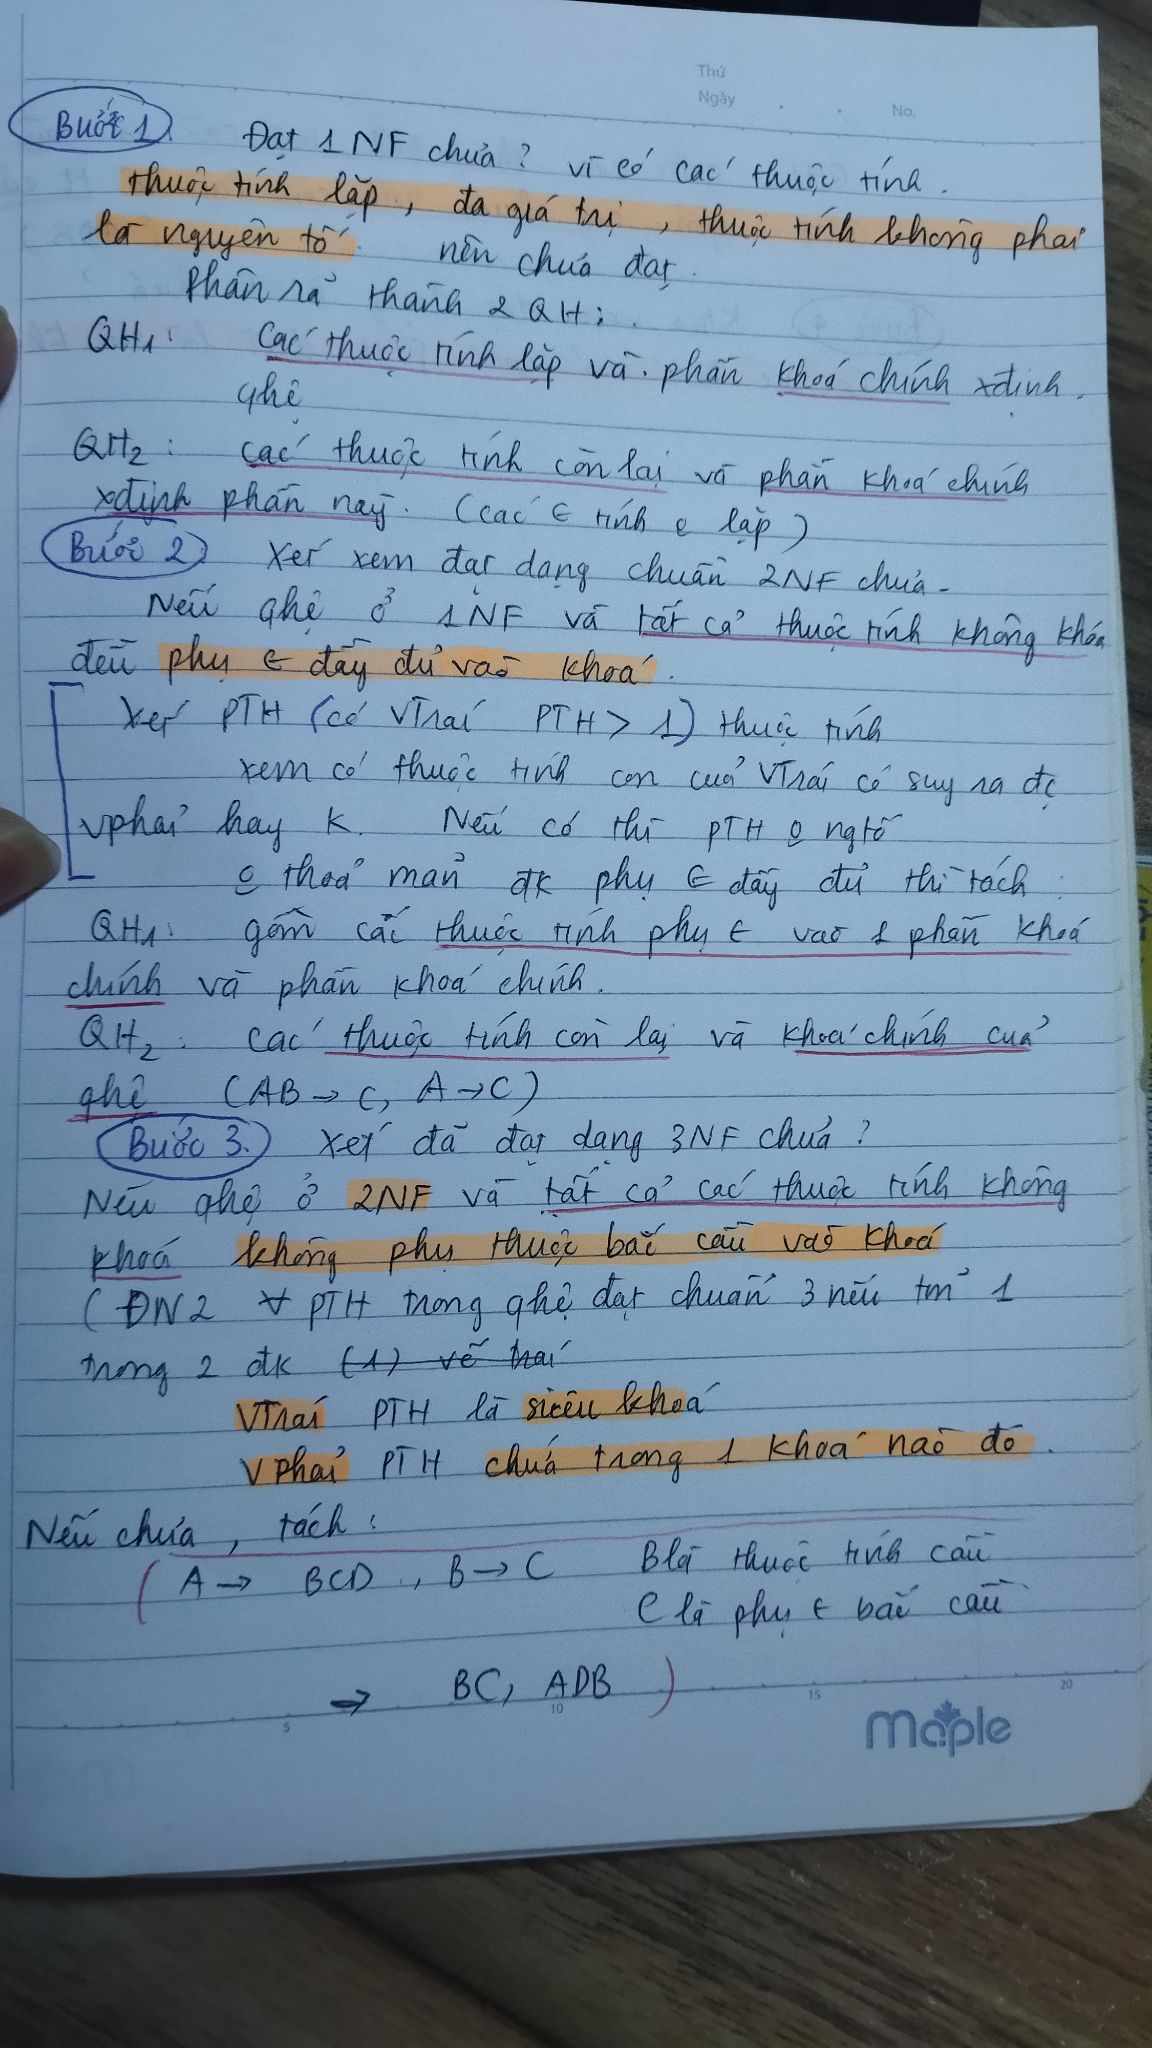 Thứ
Ngày
No.
Bước 1. Đạt 1NF chưa? vì có các thuộc tính.
thuộc tính lặp, đa giá trị, thuộc tính không phải
là nguyên tố nên chưa đạt.
Phân rã thành 2 QH:
QH1: Các thuộc tính lặp và phần khoá chính xđịnh.
ghệ
QH2: các thuộc tính còn lại và phần khoá chính
xđịnh phần này. (các ∈ tính o lặp)
Bước 2 Xét xem đạt dạng chuẩn 2NF chưa.
Nếu qhệ ở 1NF và tất cả thuộc tính không khóa
đều phụ ∈ đầy đủ vào khoá.
Xét PTH (có VTrái PTH > 1) thuộc tính
xem có thuộc tính con của VTrái có suy ra đc
vphải hay k. Nếu có thì PTH o ngtố
o thoả mãn đk phụ ∈ đầy đủ thì tách:
QH1: gồm các thuộc tính phụ ∈ vào 1 phần khoá
chính và phần khoá chính.
QH2: các thuộc tính còn lại và khoá chính của
qhệ (AB → C, A → C)
Bước 3. Xét đã đạt dạng 3NF chưa?
Nếu qhệ ở 2NF và tất cả các thuộc tính không
khoá không phụ thuộc bắc cầu vào khoá
(ĐN2 ∀ PTH trong qhệ đạt chuẩn 3 nếu tm 1
trong 2 đk (1) vế trái
VTrái PTH là siêu khoá
Vphải PTH chứa trong 1 khoá nào đó.
Nếu chưa, tách:
( A → BCD, B → C B là thuộc tính cầu
C là phụ ∈ bắc cầu
→ BC, ADB )
5 10 15 20
maple